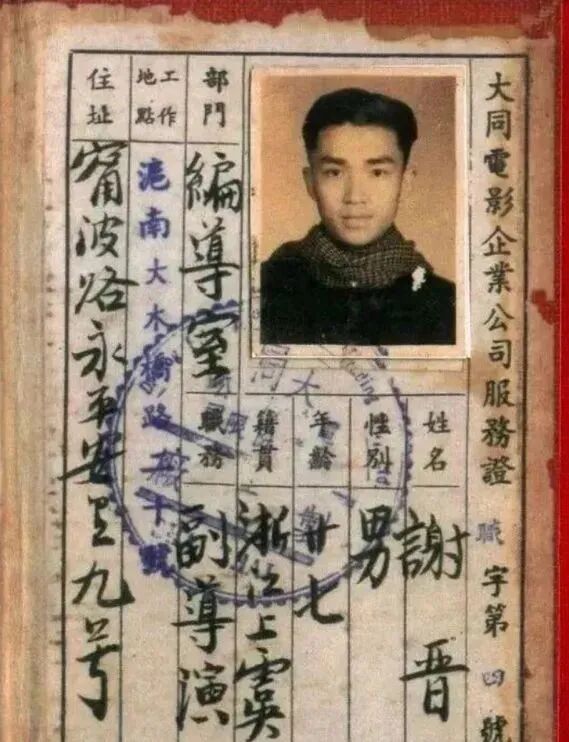 大同電影企業公司服務證
職字第四號
姓名 謝晋
性別 男
年齡 廿七
籍貫 浙江上虞
部門 編導室
職務 副導演
工作地點 滬南大木橋路二十號
住址 甯波路永平安里九号